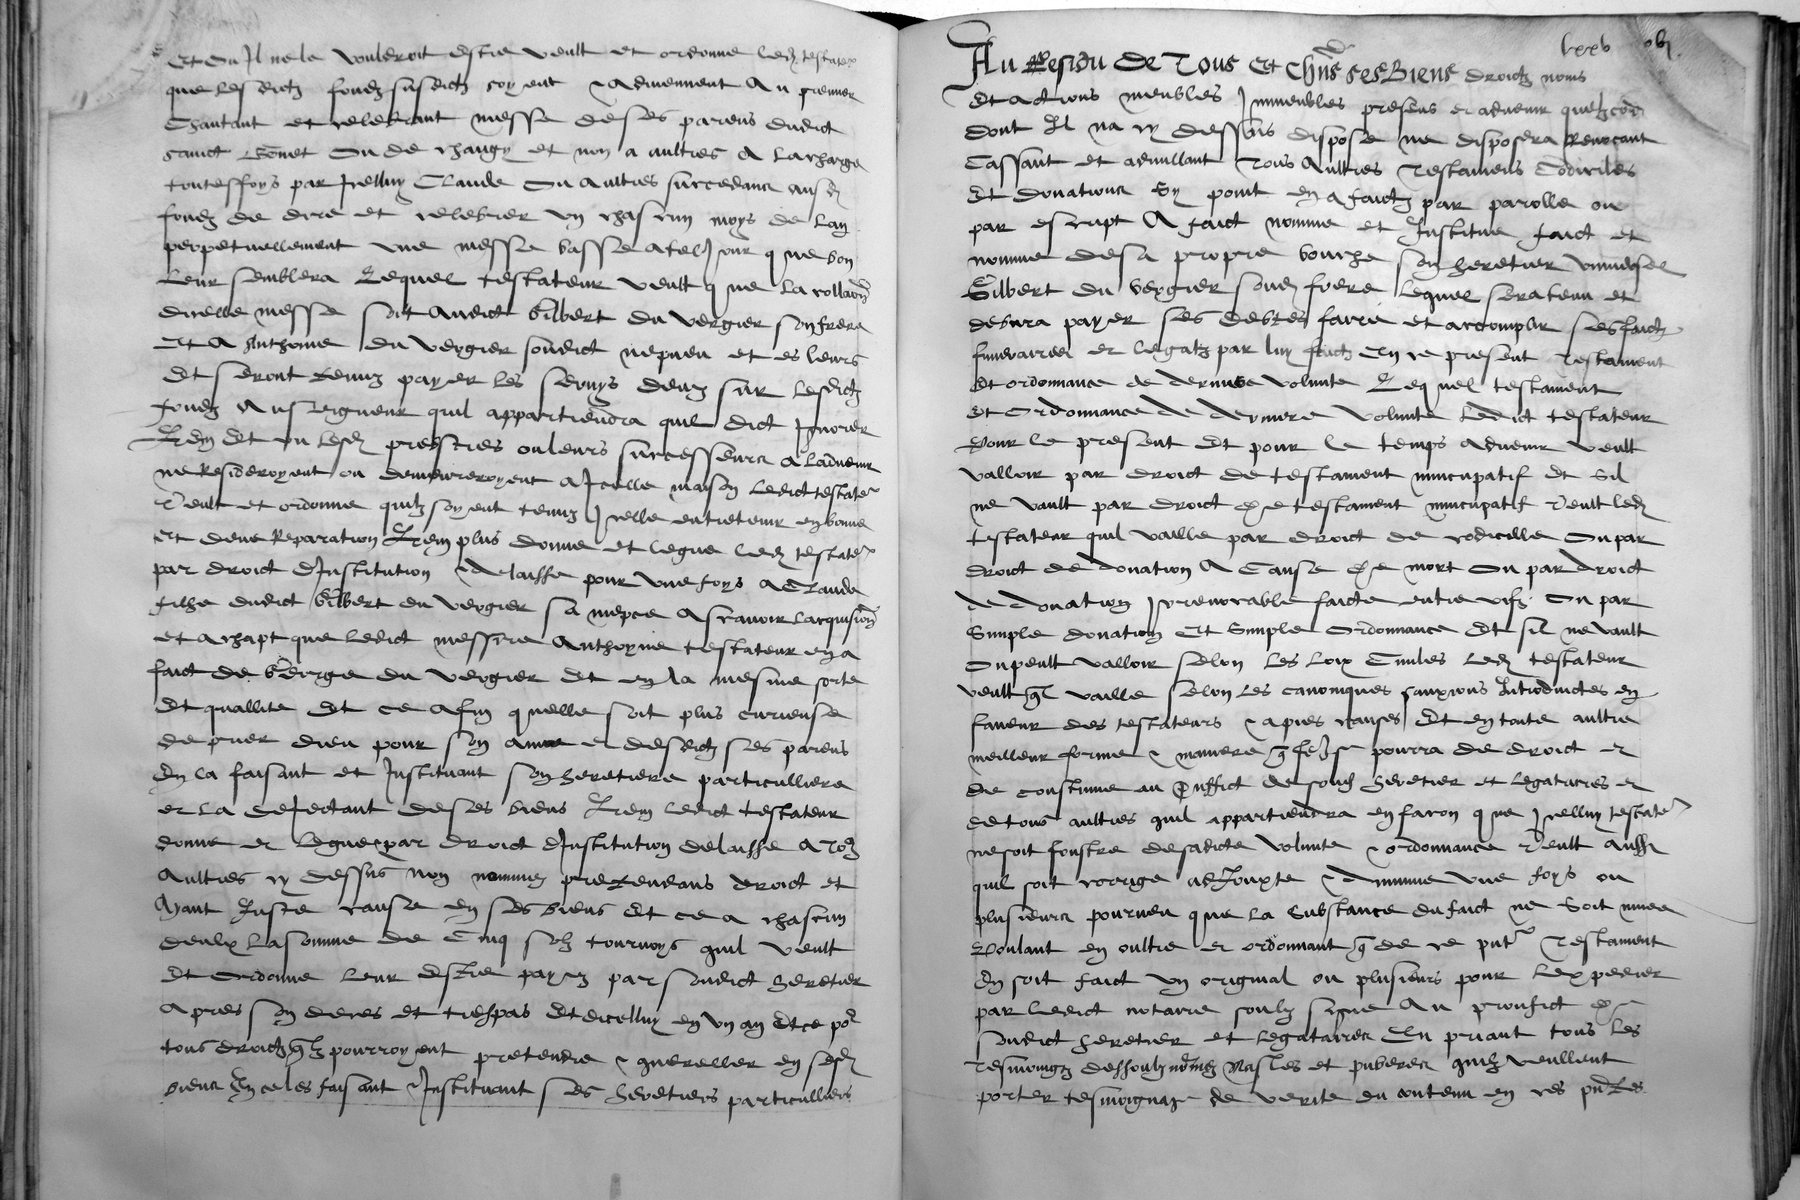 Et ou Il ne le vouldroit estre veult et ordonne led testateur
que lesdictz fondz susdictz soyent & adviennent Au premier
Chantant et celebrant messe de ses parens dudict
sainct Bonet Ou de changy et non a aultres A la charge
touteffoys par Icelluy Claude Ou Aultres succedans ausd
fondz de dire et celebrer un chascun moys de lan
perpetuellement une messe basse a tel Jour que bon
leur semblera Lequel testateur veult que la collation
dicelle messe soit Audict Gilbert du vergier son frere
Et A Anthoine du vergier sondict nepveu et es leurs
Et seront tenuz payer les servys deuz sur lesdictz
fondz Au seigneur quil appartiendra quil dict Ignorer
Item Et ou lesd prebstres ou leurs successeurs A ladvenir
ne Resideroyent ou demeureroyent A Icelle maison Ledict testateur
veult et ordonne quilz soyent tenuz Icelle entretenir en bonne
et deue Reparation Item plus donne et legue led testateur
par droict dInstitution & delaisse pour une foys A Claude
filhe dudict Gilbert du vergier sa niepce Ascavoir lacquisition
et achapt que ledict messire Anthoyne testateur en a
faict de George du vergier Et en la mesme sorte
Et quallite Et ce afin quelle soit plus curieuse
de prier dieu pour son ame et desdictz ses parens
En la faisant et Instituant son heretiere particulliere
et la dejectant de ses biens Item ledict testateur
donne et legue & par droict dInstitution delaisse A tous
Aultres cy dessus non nommez pretendans droict et
Ayant Juste cause en ses biens Et ce a chascun
deulx la somme de Cinq solz tournoys quil veult
Et Ordonne leur Estre payez par sondict heretier
Apres son deces et trespas Et dicelluy en un an Et ce por
tous droictz qlz pourroyent pretendre & quereller en sesd
biens En ce les faisant & Instituant ses heretiers particulliers
lxxv
Au Residu De Tous Et Chuns ses Biens droictz noms
Et Actions meubles Immeubles presens et advenir quelzcoes
dont Il na cy dessus dispose ne disposera Revocant
Cassant et adnullant Tous Aultres Testamens Codiciles
Et donations Sy point en a faictz par parolle ou
par escript A faict nomme et Institue faict et
nomme de sa propre bouche son heretier universel
Gilbert du vergier sond frere lequel sera tenu et
debvra payer ses debtes faire et accomplir ses faictz
funerairees et legatz par luy faictz En ce present Testament
Et ordonnance de derniere volunte Lequel testament
Et Ordonnance de derniere volunte Ledict testateur
Pour le present Et pour le temps advenir veult
valloir par droict de testament nuncupatif Et Sil
ne vault par droict de testament nuncupatif veult led
testateur quil vaille par droict de codicille Ou par
droict de donation A Cause de mort Ou par droict
de donation Irrevocable faicte entre vifz Ou par
Simple donation Et Simple Ordonnance Et sil ne vault
Ou peult valloir selon les loix Civiles led testateur
veult ql vaille selon les canonicques sanxions Introduictes en
faveur des testateurs & a pies causes Et en toute aultre
meilleur forme & maniere que pourra de droict et
de coustume au Proffict de sond heretier et legataires et
de tous aultres quil appartiendra en facon que Icelluy testateur
ne soit fraustre de sadicte volunte & ordonnance veult Aussi
quil soit corrige adJouxte & diminue une foys ou
plusieurs pourveu que la Substance du faict ne Soit muee
Voulant en oultre et ordonnant q de ce pnt Testament
En soit faict un original ou plusieurs pour lexpedier
par ledict notaire soubz signe Au prouffict de
sondict heretier et legataires En priant tous les
tesmoingz dessoubz nommez Masles et puberes quilz veullent
porter tesmoignage de verite du contenu en ces pntes